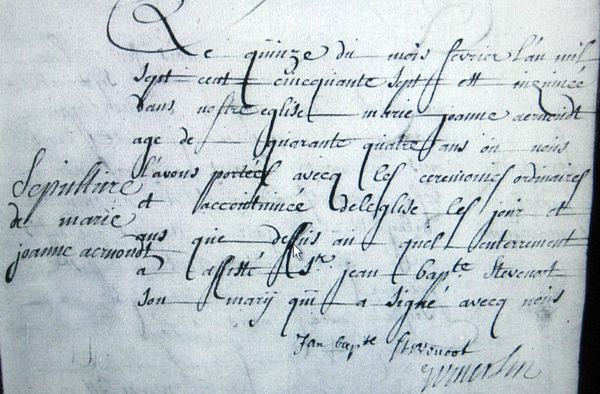 Le quinze du mois fevrier l'an mil
sept cent cincquante sept est inhumée
dans nostre eglise marie joanne aernoudt
age de quarante quatre ans ou nous
l'avons portées avecq les ceremonies ordinaires
et accoutumée de l'eglise les jour et
ans que dessus au quel enterrement
a assisté Sr. jean bapte. Stevenart
son marij qui a signé avecq nous
Sepulture
de marie
joanne aernoudt
Jan bapte